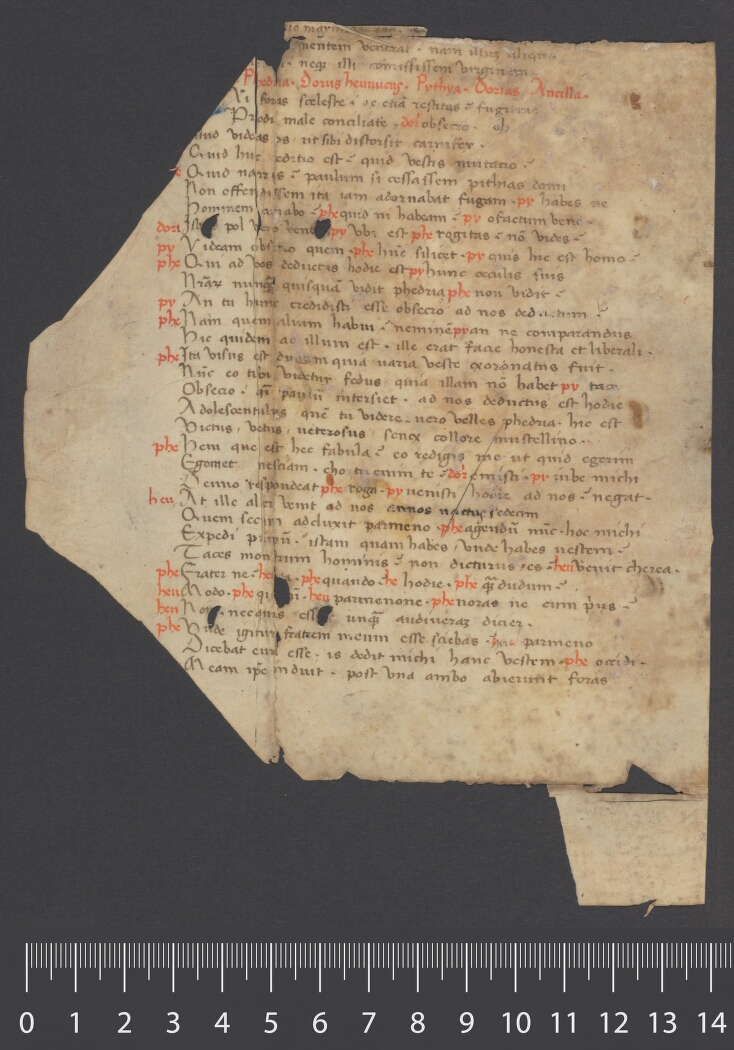 mentem venerat · nam illuz aliqu
neqz illi comisissem virginem
Phedria · Dorus heunucus · Pythya · Dorias Ancilla ·
Exi foras sceleste · ac etiã restitas · fugitive
Prodi male conciliate · dor obsecro · oh
video os ut sibi distorsit carnifex ·
Quid huc reditio est · quid vestis mutacio ·
Quid narras · paulum si cessassem pithias domi
Non offendissem ita iam adornabat fugam · py habes ne
hominem amabo · phe quid ni habeam · py o factum bene ·
dori Istuc pol vero bene · py Vbi est phe rogitas · nõ vides ·
py Videam obsecro quem · phe hũc silicet · py quis hic est homo ·
phe Qui ad vos deductus hodie est py hunc occulis suis
Nrãr nunqz quisquã vidit phedria phe non vidit ·
py An tu hunc credidisti esse obsecro ad nos deductum ·
phe Nam quem alium habui · neminẽ py an ne comparandus
Hic quidem ad illum est · ille erat facie honesta et liberali ·
phe Ita visus est dudum quia varia veste exornatus fuit ·
Nũc eo tibi videtur fedus quia illam nõ habet py tace
Obsecro · qsi paulũ intersiet · ad nos deductus est hodie
Adolescentulus quẽ tu videre vero velles phedria · hic est
Victus , vetus , veterosus , senex collore mustellino ·
phe Hem que est hec fabula · eo redigis me ut quid egerim
Egomet nesciam · eho tu emin te · dor emisti · py iube michi
Denuo respondeat phe roga · py venisti hodie ad nos · negat ·
heu At ille alter venit ad vos annos natus sedecim
Quem secum adduxit parmeno · phe agendũ nũc · hoc michi
Expedi primũ · istam quam habes , vnde habes vestem ·
Taces monstrum hominis · non dicturus es · heu venit cherea ·
phe Frater ne · heu ita · phe quando · he hodie · phe qã dudum ·
heu Modo · phe qui cũ · heu parmenone · phe noras ne eum pius ·
heu Non · nec quis esset unqã audiveraz dicier ·
phe Vnde igitur fratrem meum esse sciebas · heu parmeno
Dicebat eum esse · is dedit michi hanc vestem · phe occidi ·
Meam ipe induit · post vna ambo abierunt foras
0 1 2 3 4 5 6 7 8 9 10 11 12 13 14